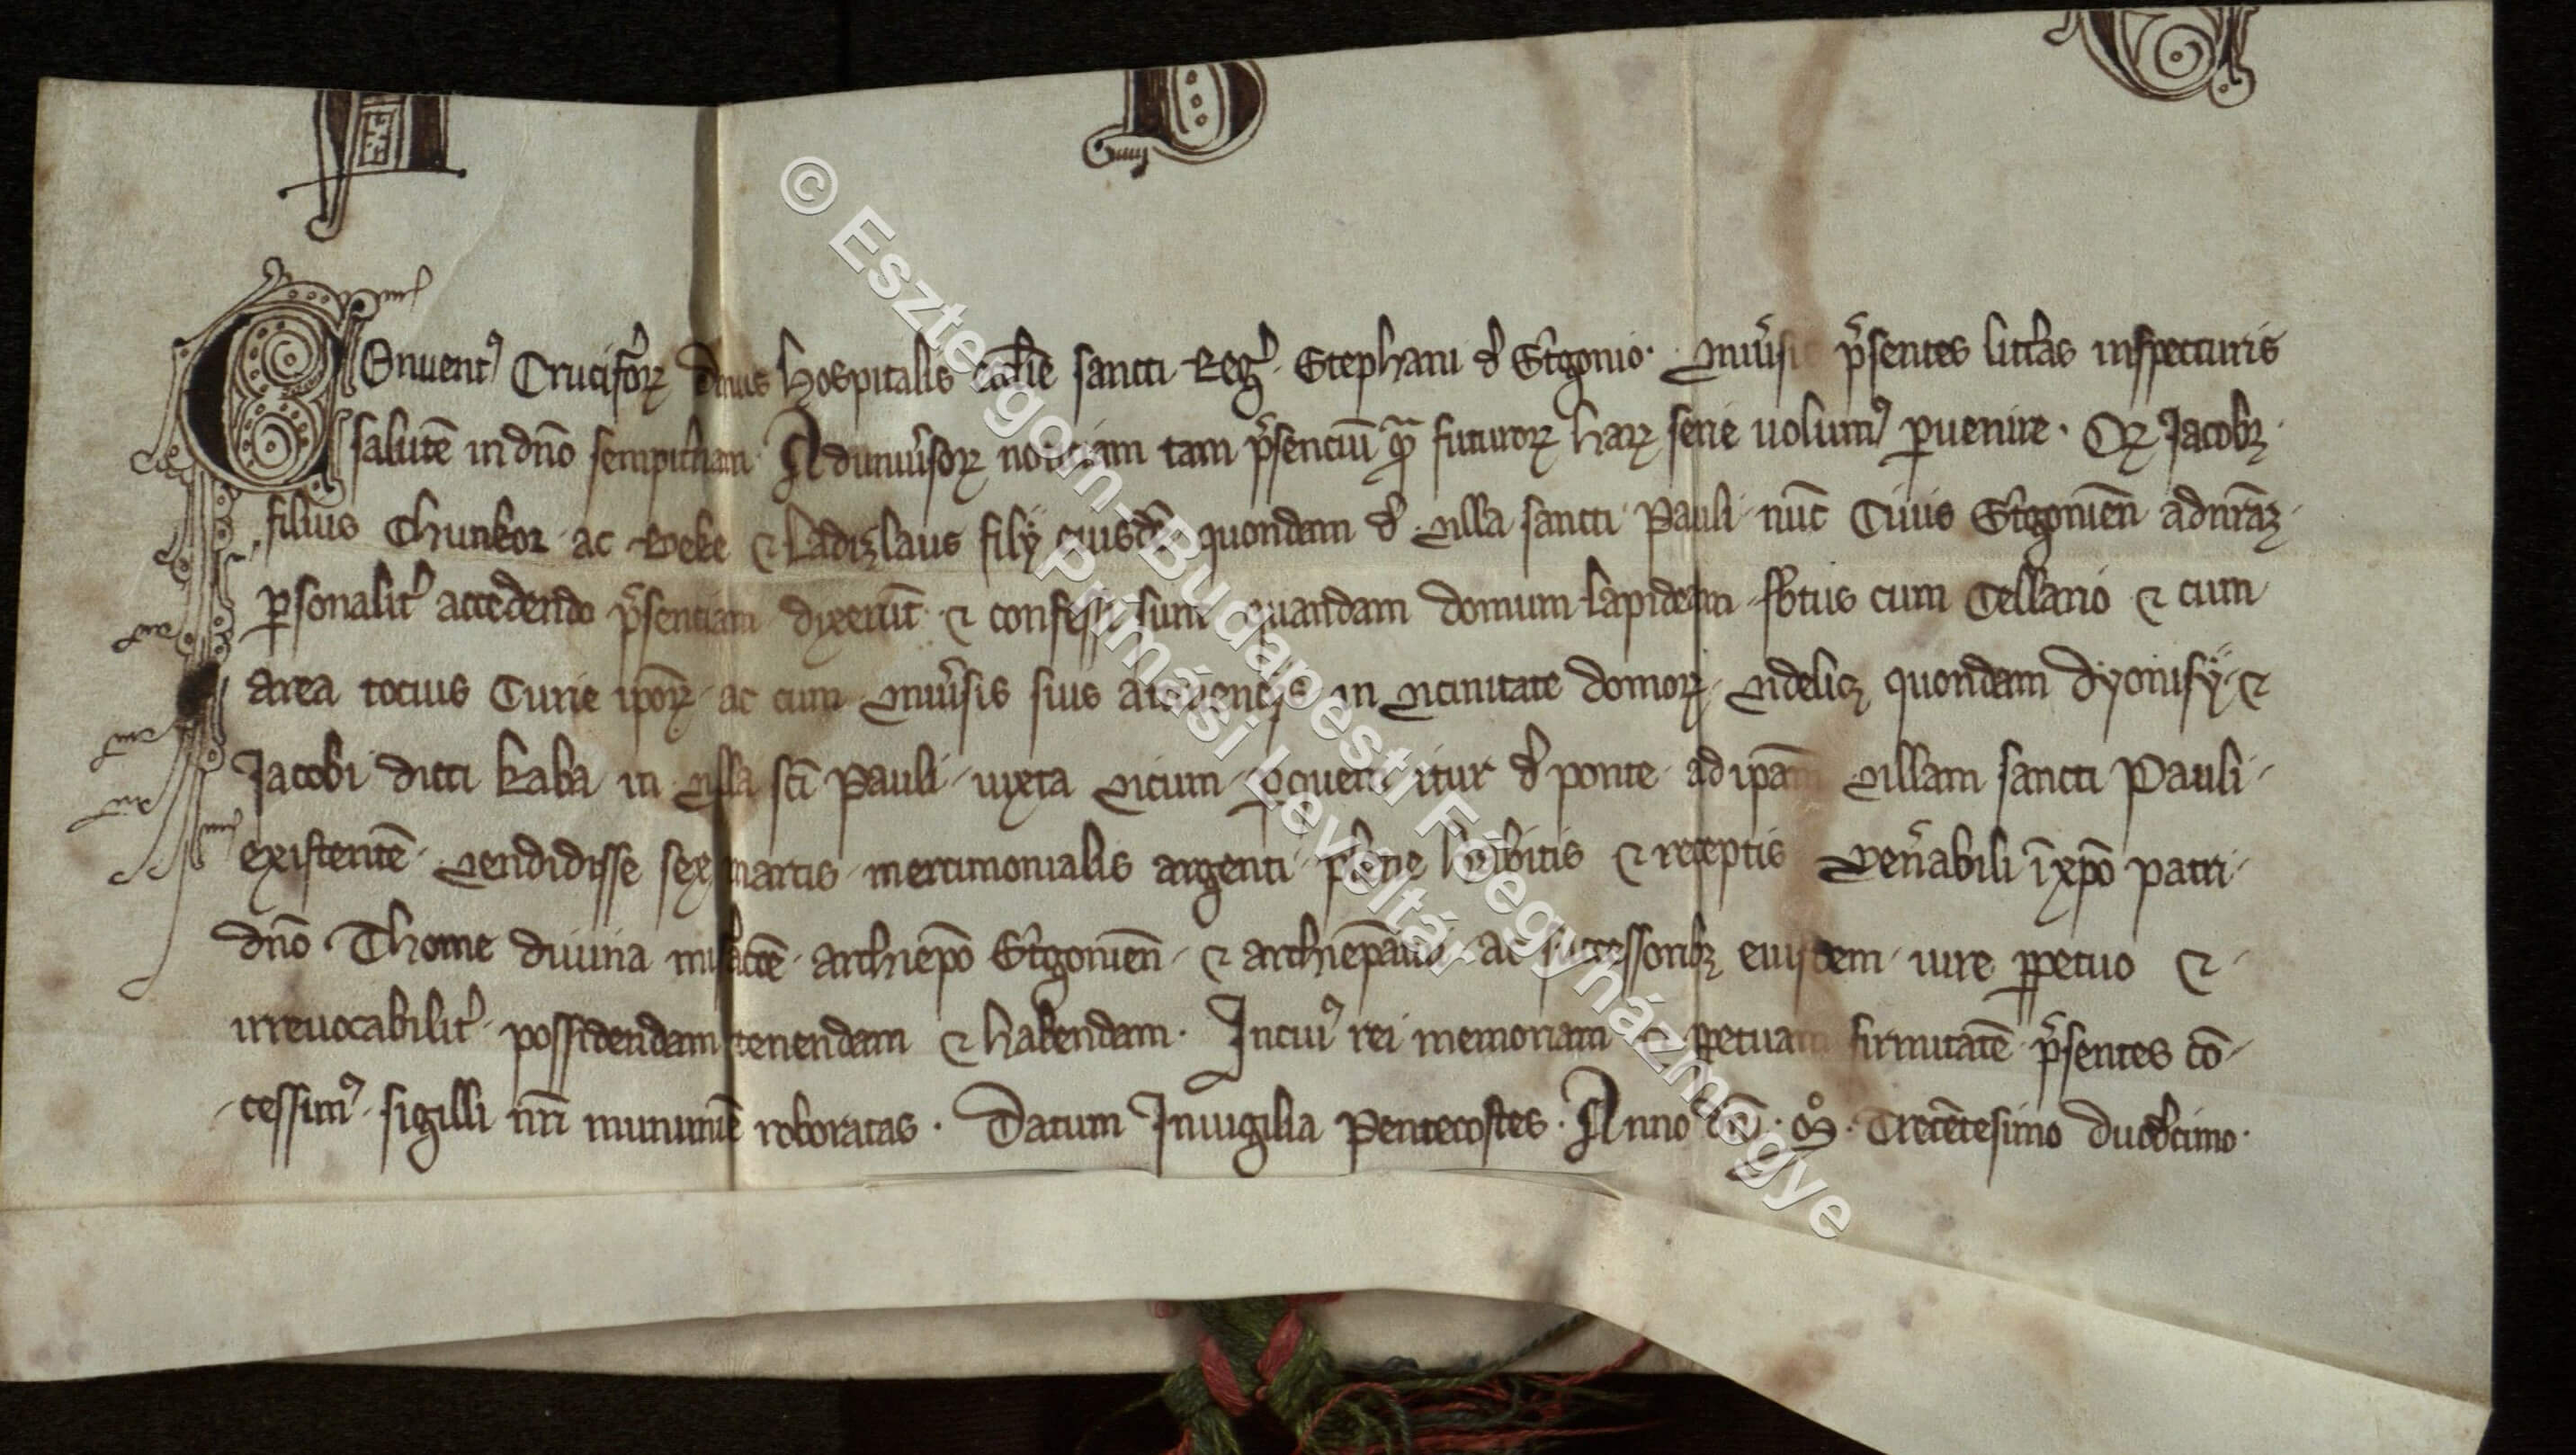 A B C
Conuent᾽ Crucifơꝝ domus hospitalis eccl̄ie sancti Reg᾽ Stephani d᾽ St᾽gonio. vniu᾽sis p᾽sentes litt᾽as inspecturis
salutē in dn̄o sempit᾽nam. Aduniu᾽soꝝ noticiam tam p᾽senciū qᵃ̄ futuroꝝ haꝝ serie uolum᾽ ꝑuenire. Qꝫ Jacobꝫ
filius Chunkor ac Beke ⁊ Ladizlaus filij eiusdē quondam d᾽ villa sancti Pauli nūc Ciuis St᾽gonien̄ adnr̄aꝫ
ꝑsonalit᾽ accedendo p᾽sentiam dixerūt ⁊ confessi sunt quandam domum lapideam sbtus cum Cellario ⁊ cum
area tocius Curie ip̄oꝝ ac cum vniu᾽sis suis attinencijs in vicinitate domoꝝ videlicꝫ quondam dyonisij ⁊
Jacobi dicti kaba in villa sc̄i Pauli iuxta vicum itur d᾽ ponte ad ip̄am villam sancti Pauli
existentē vendidisse sex marcis mercimonialis argenti plene habitis ⁊ receptis ven᾽abili īxp̄o patri
dn̄o Thome diuina mis᾽acōe archiep̄o St᾽gonien̄ ⁊ archiep̄atui ac successoribꝫ eiusdem iure ꝑpetuo ⁊
irreuocabilit᾽ possidendam tenendam ⁊ habendam. Incui᾽ rei memoriam ⁊ ꝑpetuam firmitatē p᾽sentes cō-
-cessim᾽ sigilli nr̄i munimīe roboratas. Datum Inuigilia Pentecostes. Anno dn̄i. Mͦ. Trecētesimo duod᾽cimo.
© Esztergom-Budapesti Főegyházmegye
Prímási Levéltár